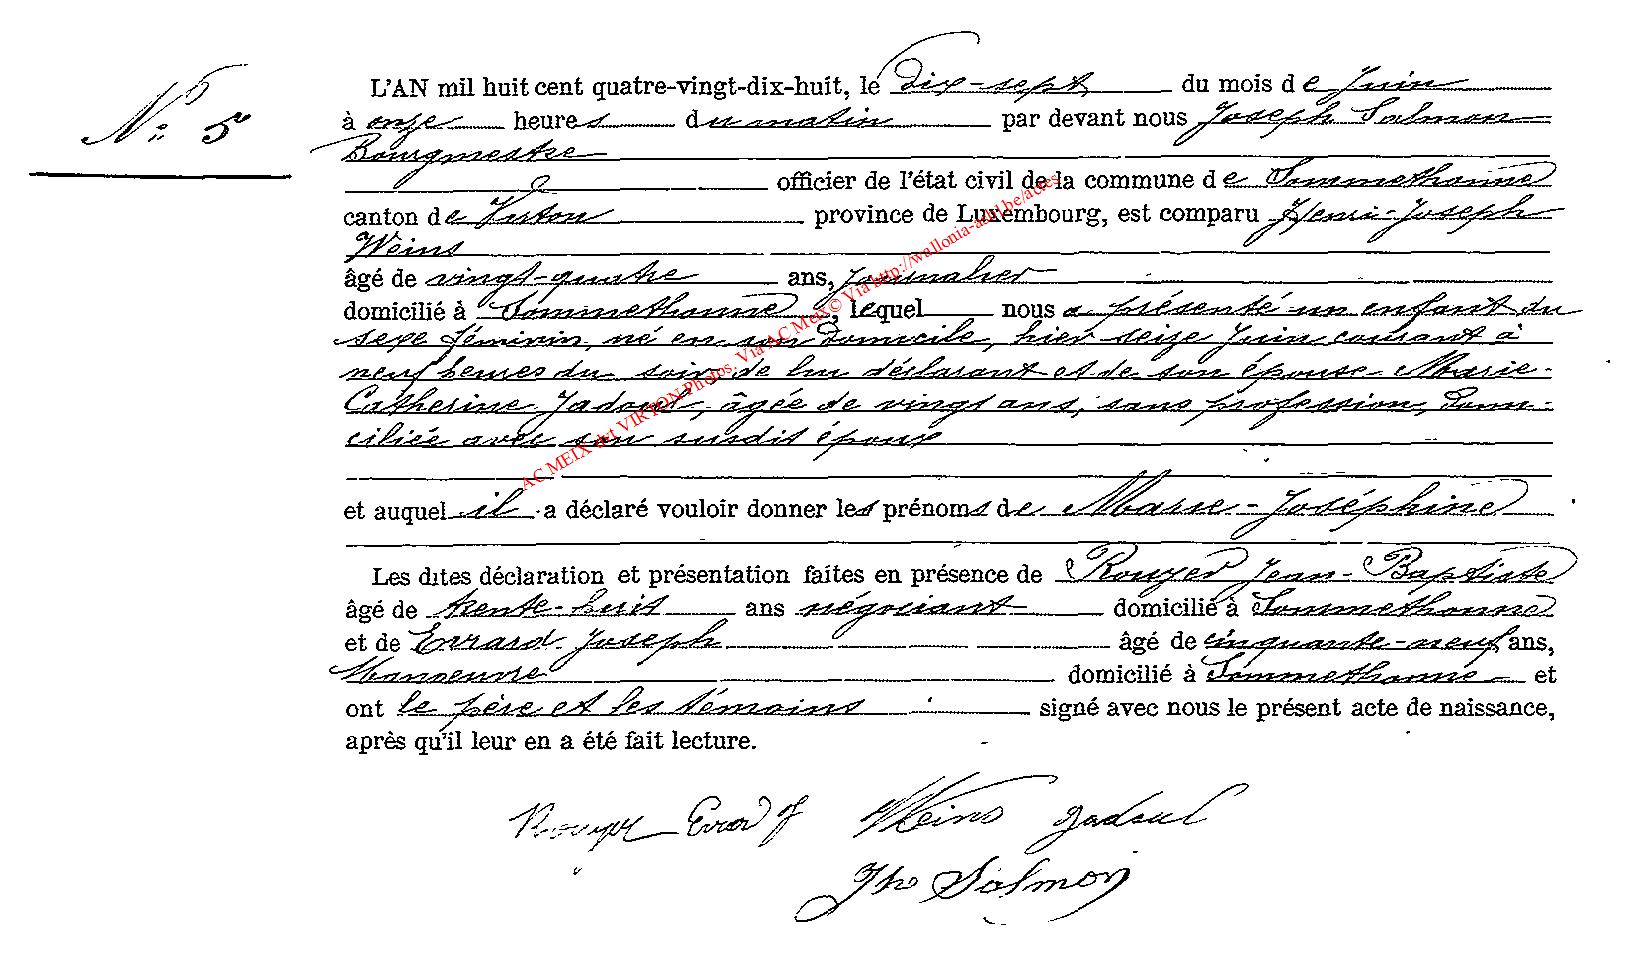 N° 5
L'AN mil huit cent quatre-vingt-dix-huit, le Dix-sept du mois de Juin
à onze heures du matin par devant nous Joseph Salmon
Bourgmestre
officier de l'état civil de la commune de Sommethonne
canton de Virton province de Luxembourg, est comparu Henri-Joseph
Weins
âgé de vingt-quatre ans, Journalier
domicilié à Sommethonne, lequel nous a présenté un enfant du
sexe féminin, né en son domicile, hier seize Juin courant à
neuf heures du soir de lui déclarant et de son épouse Marie-
Catherine Jadoul, âgée de vingt ans, sans profession, domi-
ciliée avec son susdit époux
et auquel il a déclaré vouloir donner les prénoms de Marie-Joséphine
Les dites déclaration et présentation faites en présence de Rouyer Jean-Baptiste
âgé de trente-huit ans négociant domicilié à Sommethonne
et de Evrard Joseph âgé de cinquante-neuf ans,
Manoeuvre domicilié à Sommethonne et
ont le père et les témoins signé avec nous le présent acte de naissance,
après qu'il leur en a été fait lecture.
Rouyer Evrard J Weins Jadoul
Jh Salmon
AC MEIX dvt VIRTON Photos. Via AC Meix© Via http://wallonia-asbl.be/actes